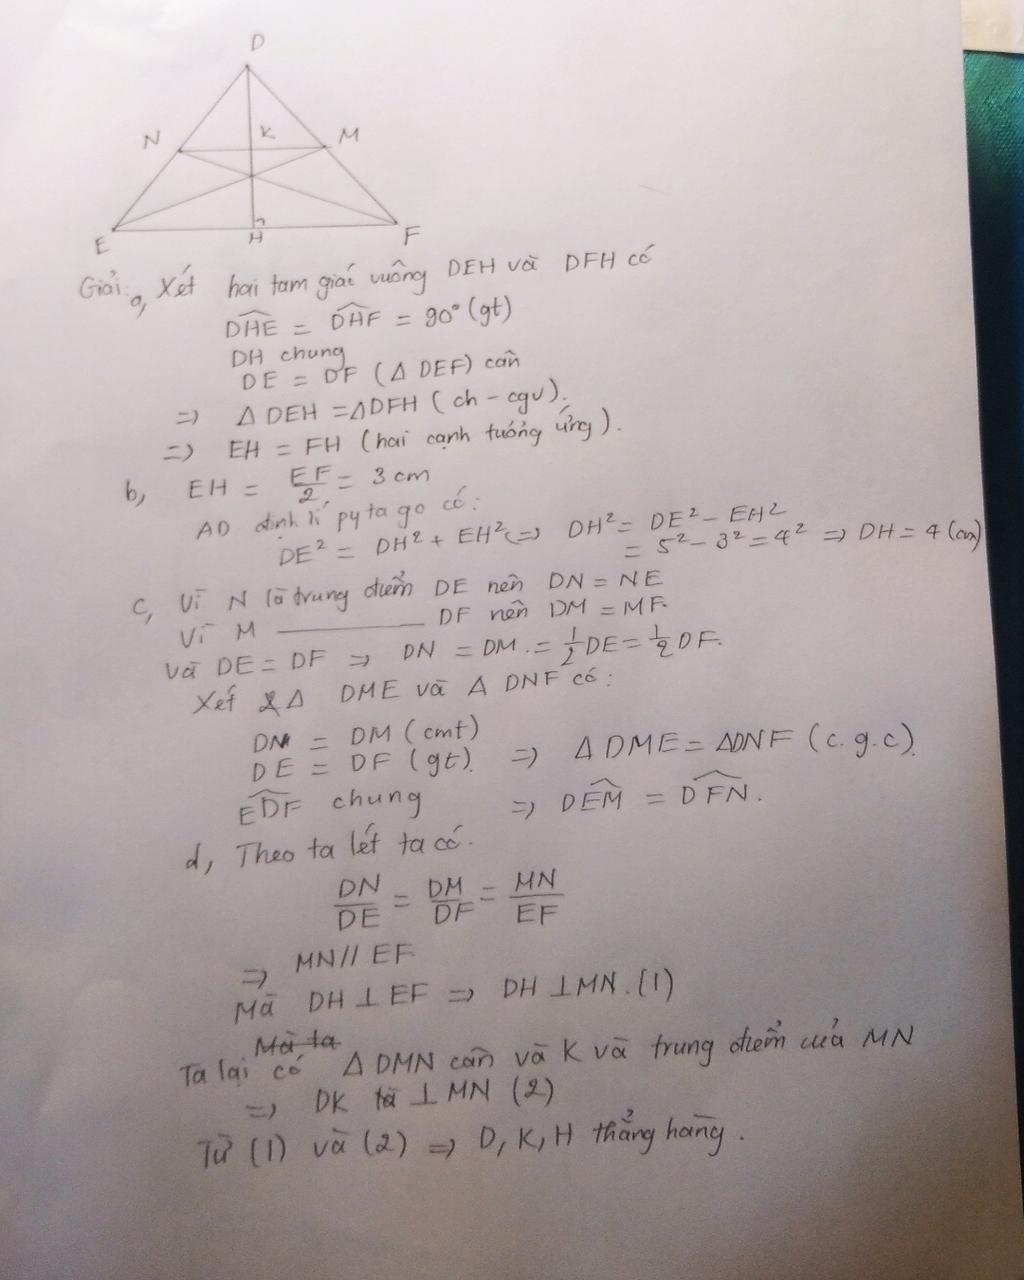 D
N K M
E H F
Giải: a, Xét hai tam giác vuông DEH và DFH có
DHE = DHF = 90° (gt)
DH chung
DE = DF (Δ DEF) cân
=> Δ DEH = Δ DFH (ch - cgv).
=> EH = FH (hai cạnh tương ứng).
b, EH = EF/2 = 3 cm
AD định lí pytago có:
DE² = DH² + EH² => DH² = DE² - EH²
= 5² - 3² = 4² => DH = 4 (cm)
c, Vì N là trung điểm DE nên DN = NE
Vì M ———— DF nên DM = MF.
và DE = DF => DN = DM = 1/2 DE = 1/2 DF.
Xét 2 Δ DME và Δ DNF có:
DN = DM (cmt)
DE = DF (gt) => Δ DME = ΔDNF (c.g.c).
EDF chung => DEM = DFN.
d, Theo ta lét ta có.
DN/DE = DM/DF = MN/EF
=> MN // EF
Mà DH ⊥ EF => DH ⊥ MN. (1)
Mà ta
Ta lại có Δ DMN cân và K và trung điểm của MN
=> DK ⊥ MN (2)
Từ (1) và (2) => D, K, H thẳng hàng.